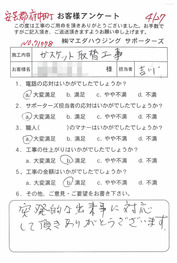 安芸郡府中町 お客様アンケート 4/27
この度は工事のご用命を頂きありがとうございました。お手数で
すがご記入頂き、ご返送頂きますようお願い申し上げます。
㈱マエダハウジング サポーターズ
施工内容 ガスケット取替工事
担当者
1. 電話の応対はいかがでしたでしょうか?
a 大変満足 b 満足 c やや不満 d 不満
2. サポーターズ担当者の応対はいかがでしたでしょうか?
a 大変満足 b 満足 c やや不満 d 不満
3. 職人( )のマナーはいかがでしたでしょうか?
a 大変満足 b 満足 c やや不満 d 不満
4. 工事の仕上がりはいかがでしたでしょうか?
a 大変満足 b 満足 c やや不満 d 不満
5. 工事の価格はいかがでしたでしょうか?
a 大変満足 b 満足 c やや不満 d 不満
6. その他、ご意見・ご要望をお書き下さい。
突発的な出来事に対応
して頂きありがとうございます